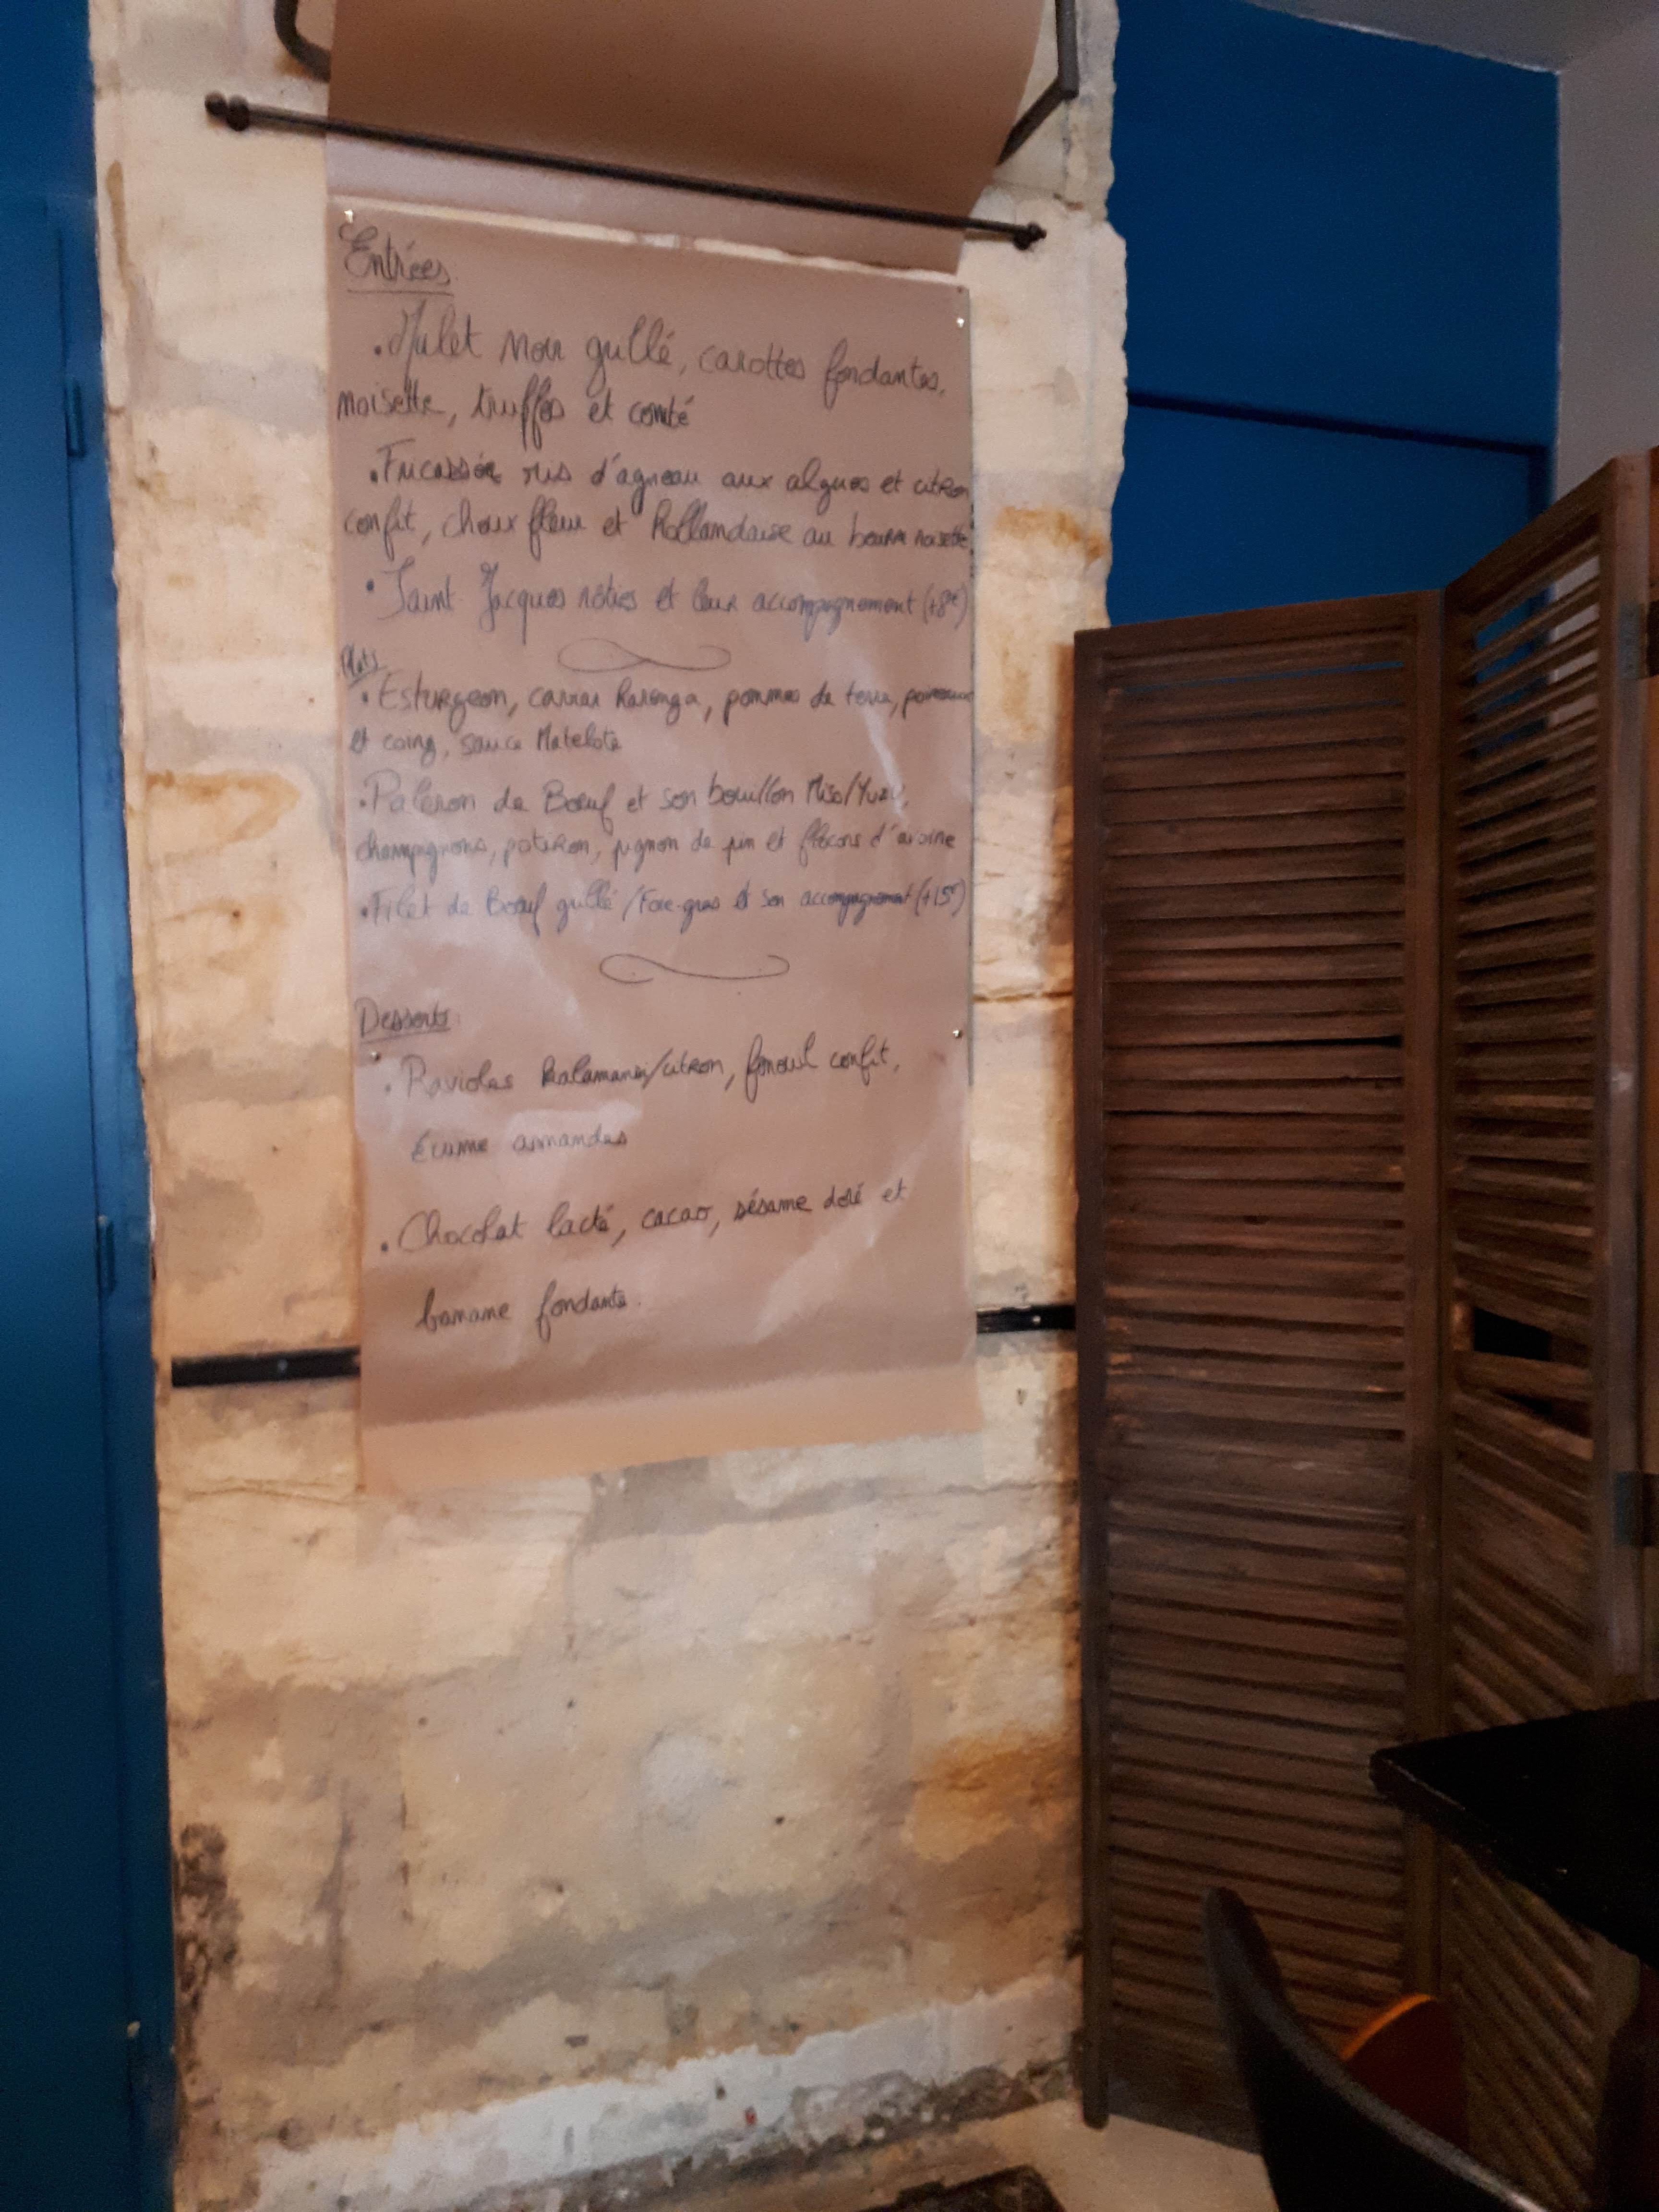 Entrées
• Mulet noir grillé, carottes fondantes,
noisette, truffes et comté
• Fricassée ris d'agneau aux algues et citron
confit, choux fleur et hollandaise au beurre noisette
• Saint-Jacques rôties et leur accompagnement (+8€)
Plats
• Esturgeon, caviar harenga, pommes de terre, poireaux
et coing, sauce Matelote
• Paleron de Boeuf et son bouillon Miso/Yuzu,
champignons, potiron, pignon de pin et flocons d'avoine
• Filet de Boeuf grillé/Foie-gras et son accompagnement (+15€)
Desserts
• Ravioles kalamansi/citron, fenouil confit,
écume amandes
• Chocolat lacté, cacao, sésame doré et
banane fondante.